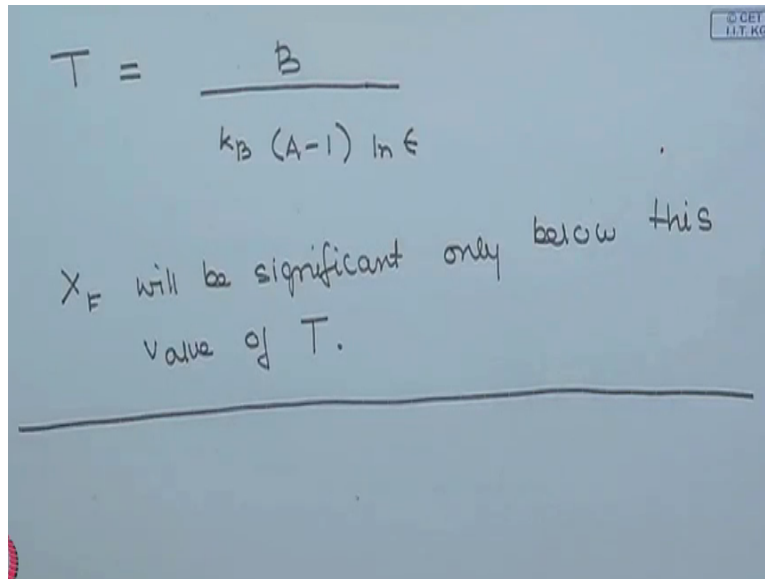 © CET
I.I.T. KG
T = B / k_B (A-1) ln ϵ
X_F will be significant only below this
value of T.